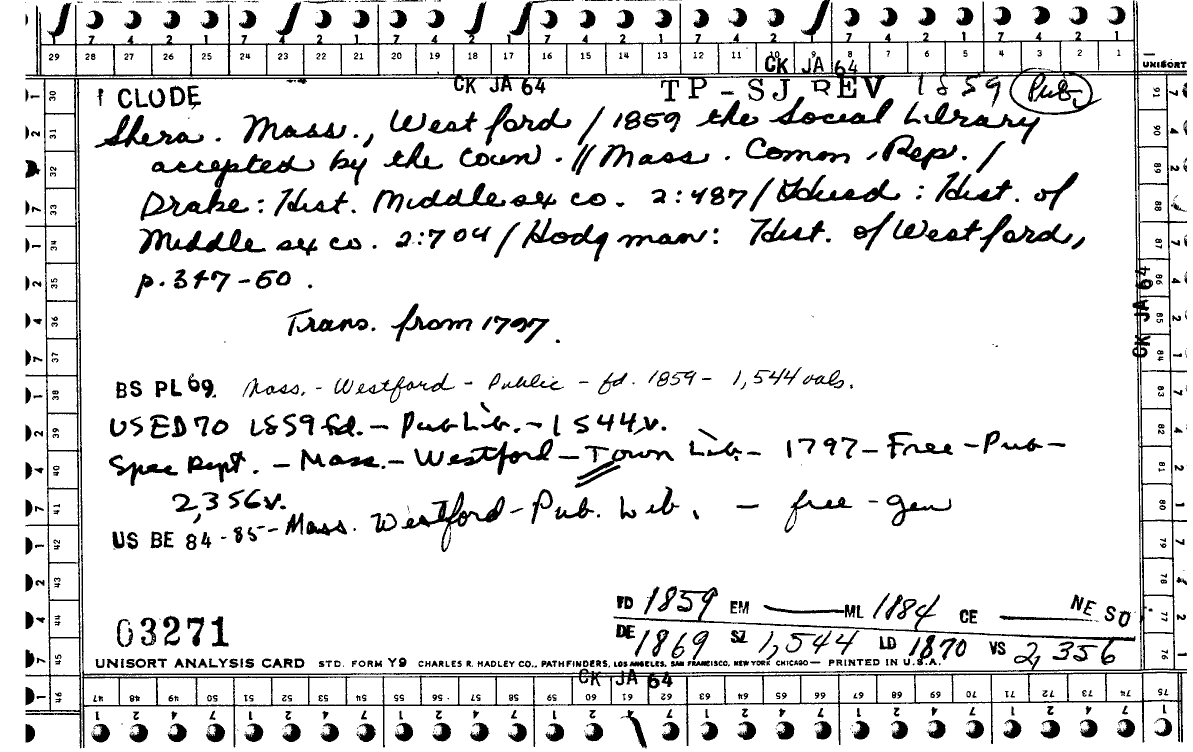 7 4 2 1 7 4 2 1 7 4 2 1 7 4 2 1 7 4 2 1 7 4 2 1 7 4 2 1
29 28 27 26 25 24 23 22 21 20 19 18 17 16 15 14 13 12 11 10 9 8 7 6 5 4 3 2 1
UNISORT
CK JA 64
CK JA 64
I CLUDE TP-SJ REV 1859 Pub.
Shera. Mass., Westford / 1859 the Social Library
accepted by the town. // Mass. Comon. Rep. /
Drake: Hist. Middlesex co. 2:487 / Hurd: Hist. of
Middlesex co. 2:704 / Hodgman: Hist. of Westford,
p. 347-50.
Trans. from 1797.
BS PL 69. Mass. - Westford - Public - fd. 1859 - 1,544 vols.
US ED 70 1859 fd. - Pub Lib. - 1544v.
Spec Rept. - Mass. - Westford - Town Lib - 1797 - Free - Pub -
2,356v.
US BE 84-85 - Mass. Westford - Pub. Lib. - free - gen
CK JA 64
FD 1859 EM — ML 1184 CE — NE SO
DE 1869 SZ 1,544 LD 1870 VS 2,356
03271
UNISORT ANALYSIS CARD STD. FORM Y9 CHARLES R. HADLEY CO., PATHFINDERS, LOS ANGELES, SAN FRANCISCO, NEW YORK CHICAGO — PRINTED IN U.S.A.
CK JA 64
47 48 49 50 51 52 53 54 55 56 57 58 59 60 61 62 63 64 65 66 67 68 69 70 71 72 73 74 75